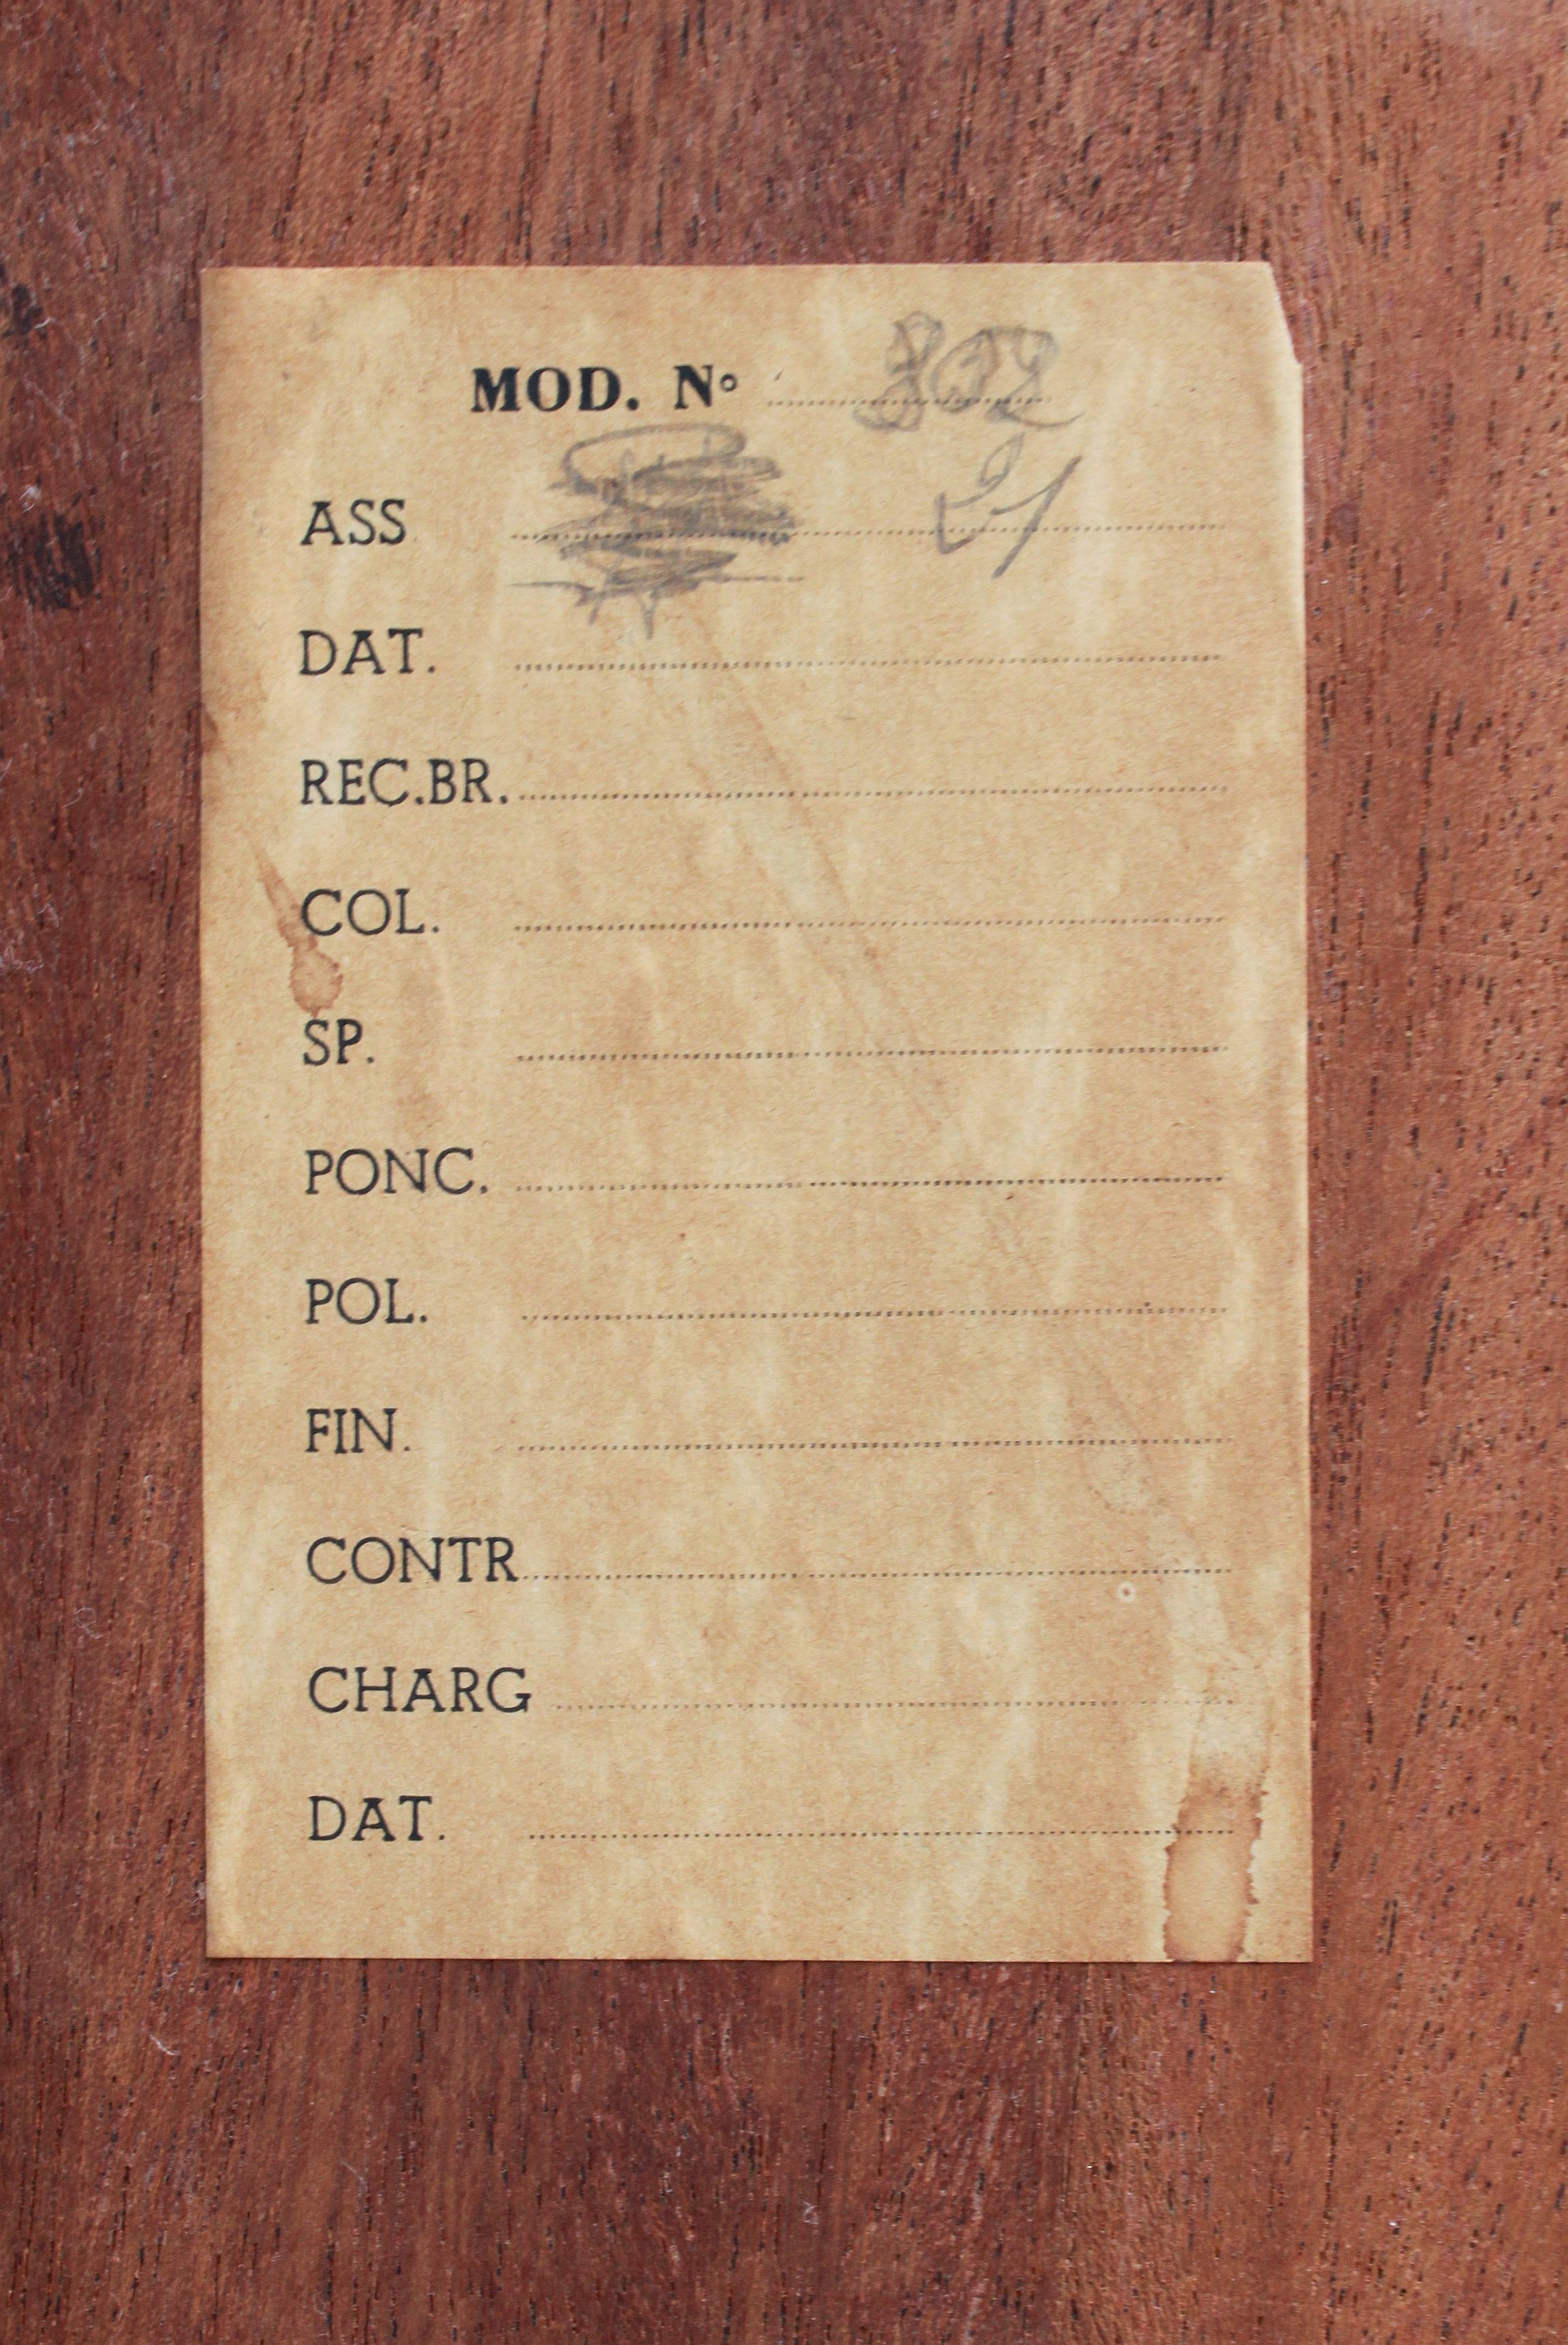 MOD. N° 802
ASS 21
DAT.
REC.BR.
COL.
SP.
PONC.
POL.
FIN.
CONTR.
CHARG
DAT.